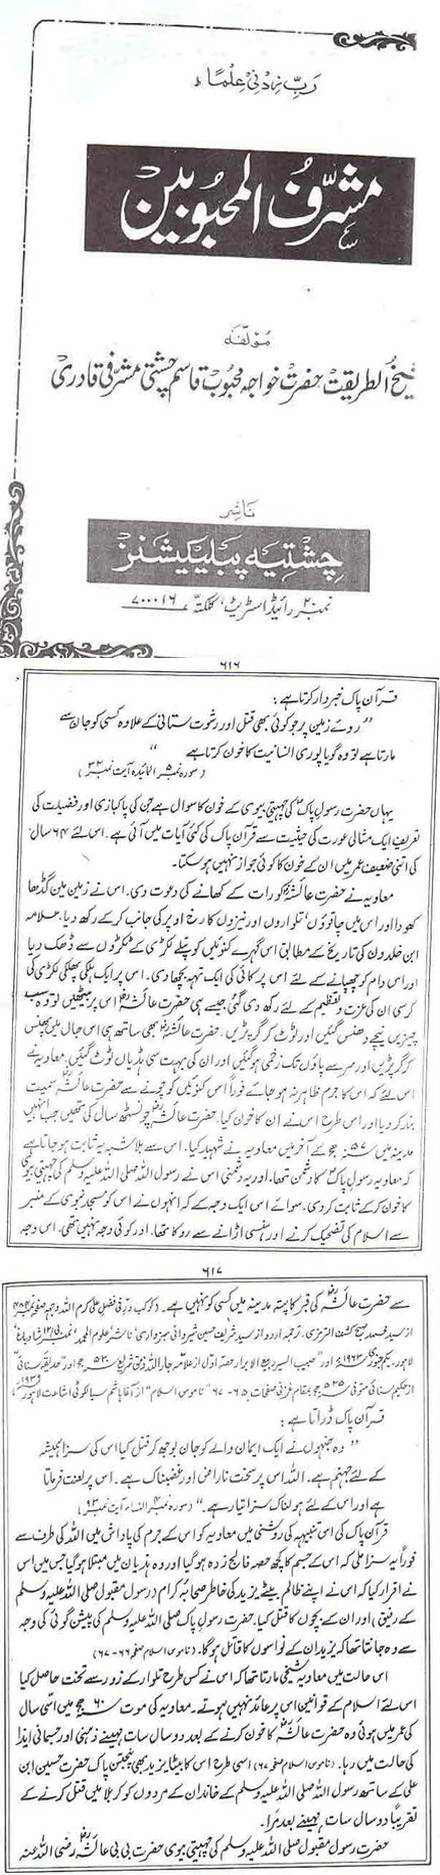 رَبِّ زِدْنِیْ عِلْمًا ء
مشرّفُ المحبُوبین
مؤلفہ
شیخ الطریقت حضرت خواجہ محبوب قاسم چشتی مشرفی قادری
ناشر
چشتیہ پبلیکیشنز
نمبر ۲۰ رائیڈ اسٹریٹ، کلکتہ ۷۰۰۰۱۶
۶۱۶
قرآن پاک خبردار کرتا ہے :
”روئے زمین پر جو کوئی بھی قتل اور رشوت ستانی کے علاوہ کسی کو جان سے
مارتا ہے تو وہ گویا پوری انسانیت کا خون کرتا ہے“
(سورہ نمبر ۵ المائدہ آیت نمبر ۳۲)
یہاں حضرت رسول پاکؐ کی چہیتی بیوی کے خون کا سوال ہے جن کی پاکبازی اور فضیلت کی
تعریف ایک مثالی عورت کی حیثیت سے قرآن پاک کی کئی آیات میں آئی ہے۔ اس لئے ۶۴ سال
کی اتنی ضعیف عمر میں ان کے خون کا کوئی جواز نہیں ہو سکتا۔
معاویہ نے حضرت عائشہؓ کو رات کے کھانے کی دعوت دی۔ اس نے زمین میں گڈھا
کھودا اور اس میں چاقوؤں، تلواروں اور نیزوں کا رخ اوپر کی جانب کر کے رکھ دیا۔ علامہ
ابن خلدون کی تاریخ کے مطابق اس گہرے کنوئیں کو پتلے لکڑی کے ٹکڑوں سے ڈھک دیا
اور اس دام کو چھپانے کے لئے اس پر کائی کی ایک تہہ بچھا دی۔ اس پر ایک ہلکی پھلکی لکڑی کی
کرسی ان کی عزت و تعظیم کے لئے رکھ دی گئی جیسے ہی حضرت عائشہؓ اس پر بیٹھیں تو وہ سب
چیزیں نیچے دھنس گئیں اور ٹوٹ کر گر پڑیں۔ حضرت عائشہؓ بھی ساتھ ہی اس جال میں پھنس
کر گر پڑیں اور سر سے پاؤں تک زخمی ہو گئیں اور ان کی بہت سی ہڈیاں ٹوٹ گئیں۔ معاویہ نے
اس لئے کہ اس کا جرم ظاہر نہ ہو جائے فوراً اس کنوئیں کو چونے سے حضرت عائشہؓ سمیت
بند کر دیا اور اس طرح اس نے ان کا خون کیا۔ حضرت عائشہؓ چونسٹھ سال کی تھیں جب انہیں
مدینہ میں ۵۷ھ کے حج کے آخر میں معاویہ نے شہید کیا۔ اس سے بلاشبہ یہ ثابت ہو جاتا ہے
کہ معاویہ رسول پاکؐ کا دشمن تھا۔ اور یہ دشمنی اس نے رسول اللہ صلی اللہ علیہ وسلم کی چہیتی بیوی
کا خون کر کے ثابت کر دی۔ سوائے اس ایک وجہ کے کہ انہوں نے اس کو مسجد نبوی کے منبر
سے اسلام کی تضحیک کرنے اور ہنسی اڑانے سے روکا تھا۔ اور کوئی وجہ نہیں تھی۔ اس وجہ
۶۱۷
سے حضرت عائشہؓ کی قبر کا پتہ مدینہ میں کسی کو نہیں ہے۔ (کوکب دری فضل علی کرم اللہ وجہہ صفحہ ۴۸۴
از سید محمد صالح کشفی الترمذی، ترجمہ اردو از سید شریف حسین شیروانی سبزواری ناشر علوم
لاہور ۱۹۶۳ء اور "حبیب السیر ربیع الابرار حصہ اول از علامہ جار اللہ ۵۳۰ھ اور "حدیقہ سنائی"
از حکیم سنائی متوفی ۵۲۵ھ بمقام غزنی صفحات ۶۵-۶۷ "ناموس اسلام" از آغا ہاشم سیالکوٹی اشاعت لاہور ۱۹۳۹ء)
قرآن پاک ڈراتا ہے :
”وہ جنہوں نے ایک ایمان والے کو جان بوجھ کر قتل کیا اس کی سزا ہمیشہ
کے لئے جہنم ہے۔ اللہ اس پر سخت ناراض اور غضبناک ہے۔ اس پر لعنت فرماتا
ہے اور اس کے لئے ہولناک سزا تیار ہے۔“ (سورہ نمبر ۴ النساء آیت نمبر ۹۳)
قرآن پاک کی اس تنبیہہ کی روشنی میں معاویہ کو اس کے جرم کی پاداش میں اللہ کی طرف سے
فوراً یہ سزا ملی کہ اس کے جسم کا کچھ حصہ فالج زدہ ہو گیا اور وہ ہذیان میں مبتلا ہو گیا جس میں اس
نے اقرار کیا کہ اس نے اپنے ظالم بیٹے یزید کی خاطر صحابہ کرام (رسول مقبول صلی اللہ علیہ وسلم
کے رفیق) اور ان کے بچوں کا قتل کیا۔ حضرت رسول پاک صلی اللہ علیہ وسلم کی پیشن گوئی کی وجہ
سے وہ جانتا تھا کہ یزید ان کے نواسوں کا قاتل ہوگا۔ (ناموس اسلام صفحہ ۶۶-۶۷)
اس حالت میں معاویہ شیخی مارتا تھا کہ اس نے کس طرح تلوار کے زور سے تخت حاصل کیا
اس لئے اسلام کے قوانین اس پر عائد نہیں ہوتے۔ معاویہ کی موت ۶۰ھ حج میں اسی سال
کی عمر میں ہوئی وہ حضرت عائشہؓ کا خون کرنے کے بعد دو سال سات مہینے ذہنی اور جسمانی ایذا
کی حالت میں رہا۔ (ناموس اسلام صفحہ ۶۷) اسی طرح اس کا بیٹا یزید بھی پنجتن پاک حضرت حسین ابن
علی کے ساتھ رسول اللہ صلی اللہ علیہ وسلم کے خاندان کے مردوں کو کربلا میں قتل کرنے کے
تقریباً دو سال سات مہینے بعد مرا۔
حضرت رسول مقبول صلی اللہ علیہ وسلم کی چہیتی بیوی حضرت بی بی عائشہ رضی اللہ عنہ